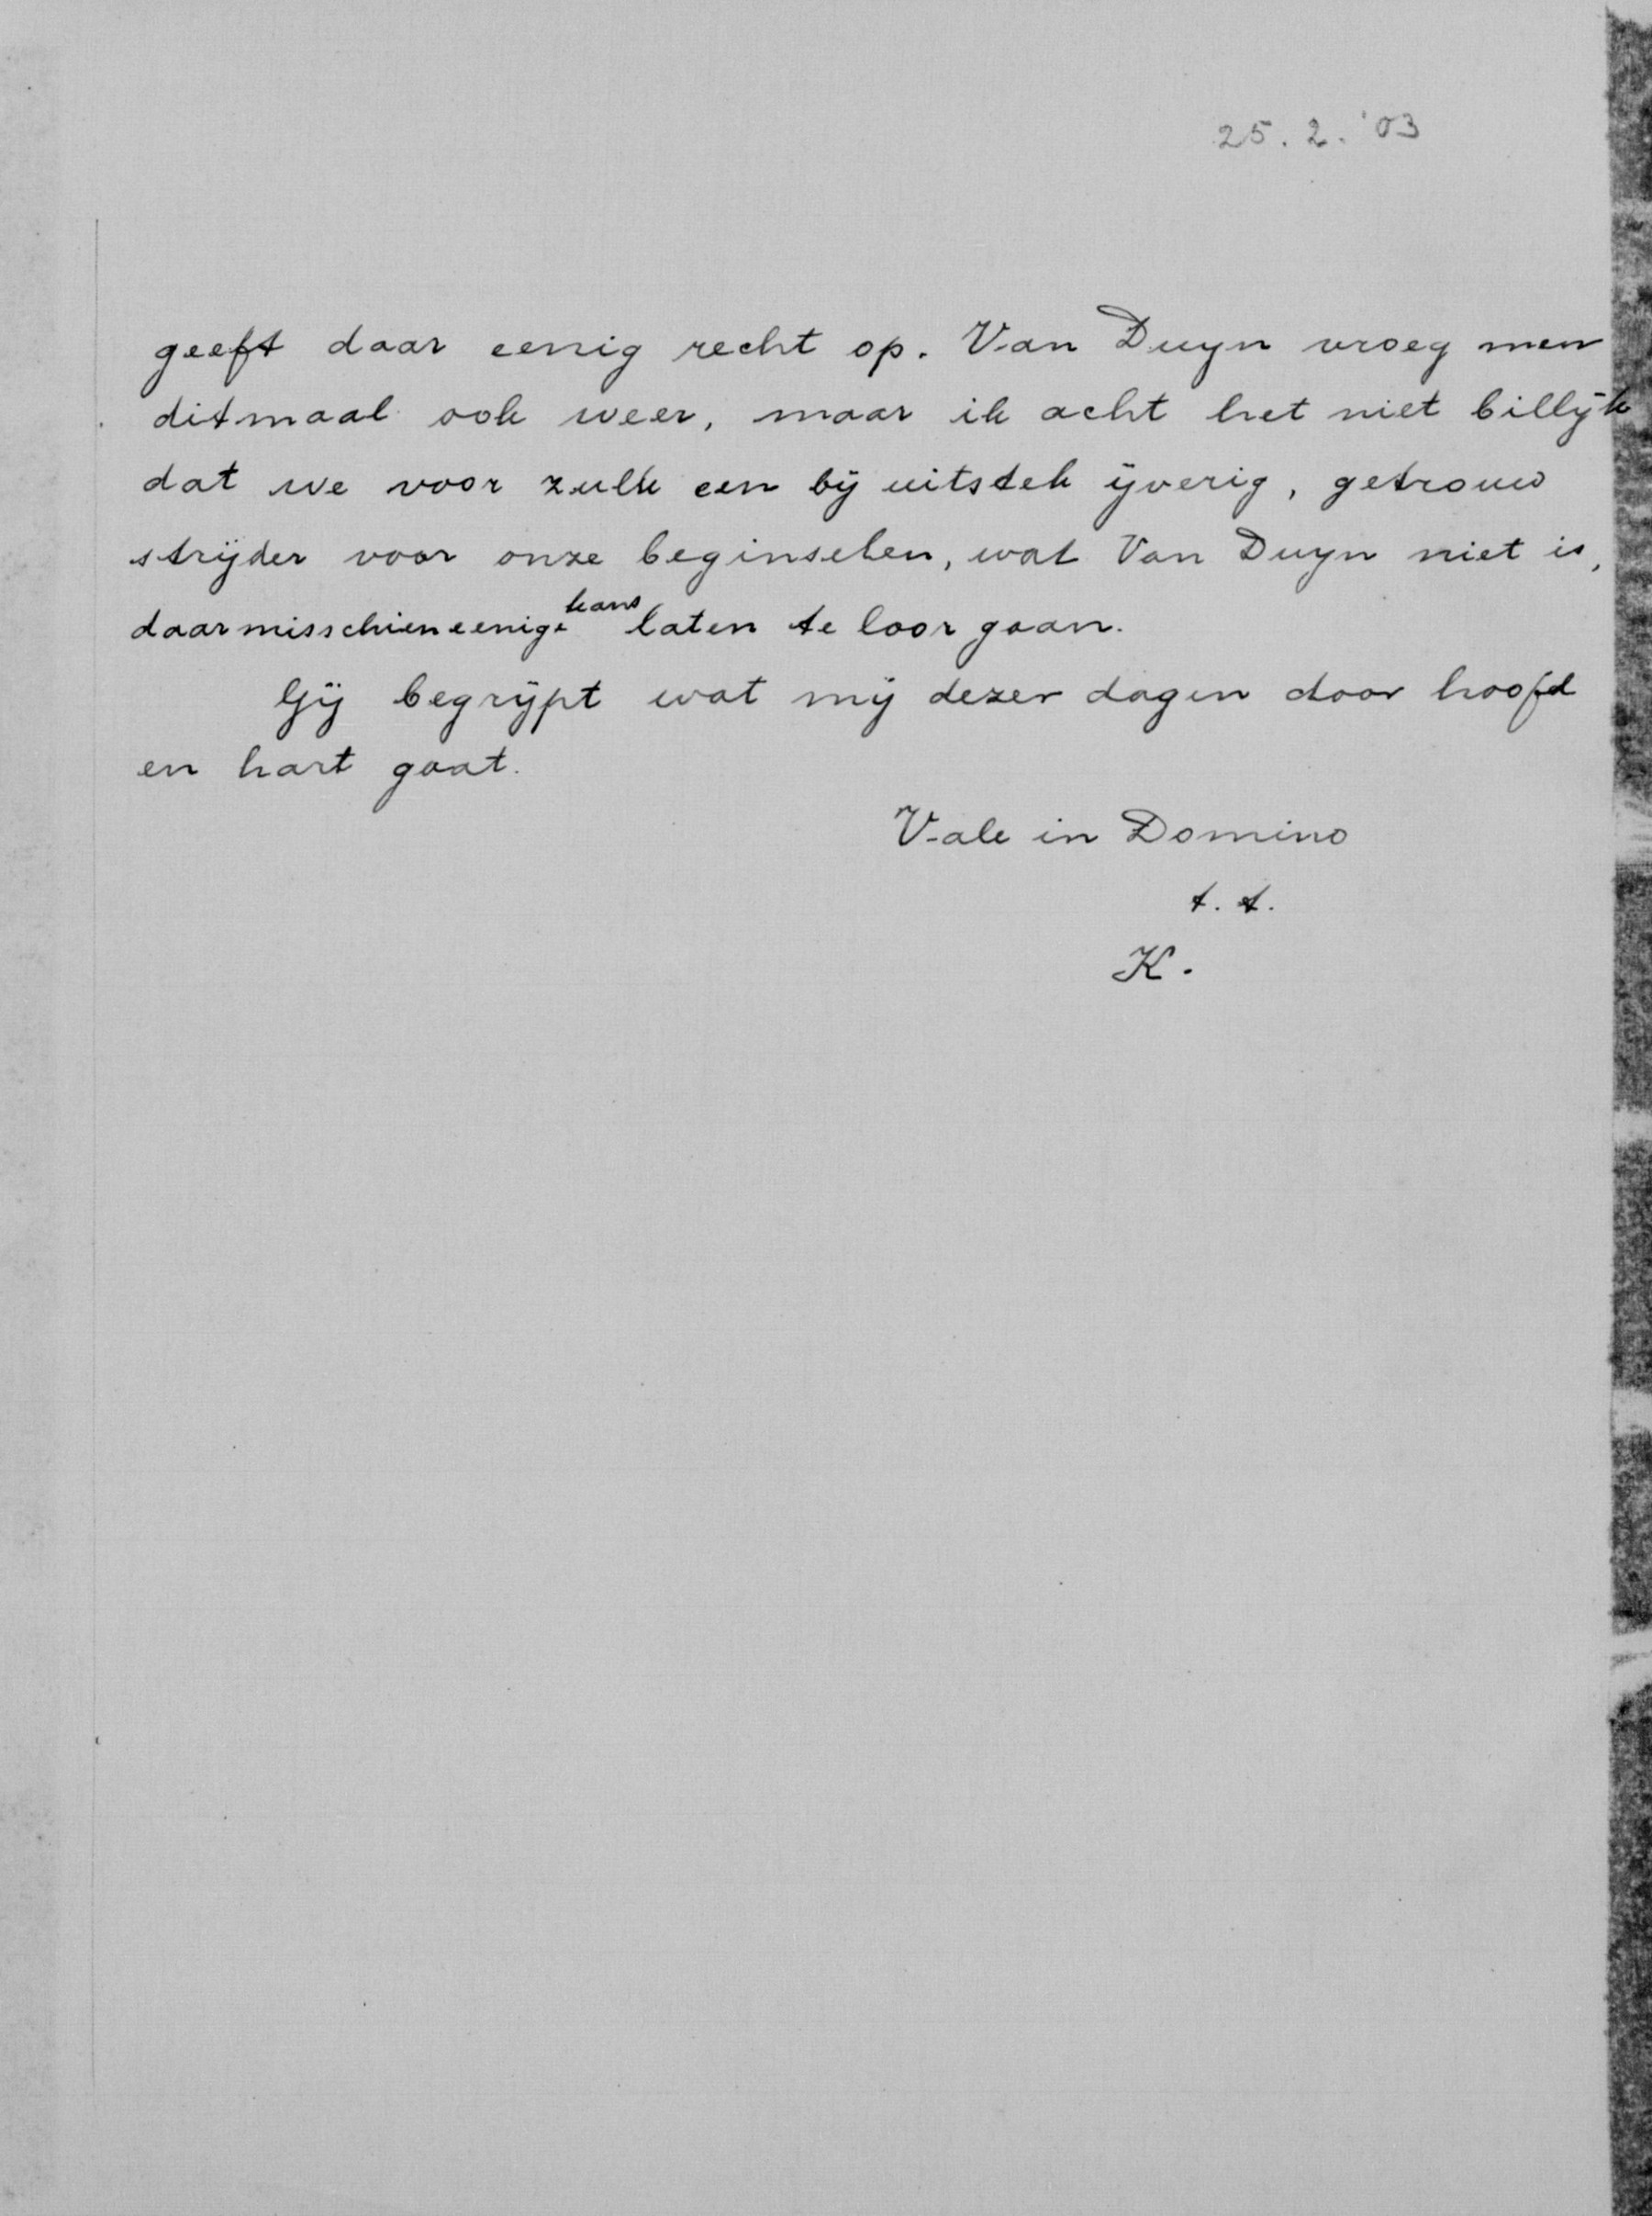 25.2.'03
geeft daar eenig recht op. Van Duyn vroeg men
ditmaal ook weer, maar ik acht het niet billijk
dat we voor zulk een bij uitstek ijverig, getrouw
strijder voor onze beginselen, wat Van Duyn niet is,
daar misschien eenige kans laten te loor gaan.
Gij begrijpt wat mij dezer dagen door hoofd
en hart gaat.
Vale in Domino
t.t.
K.